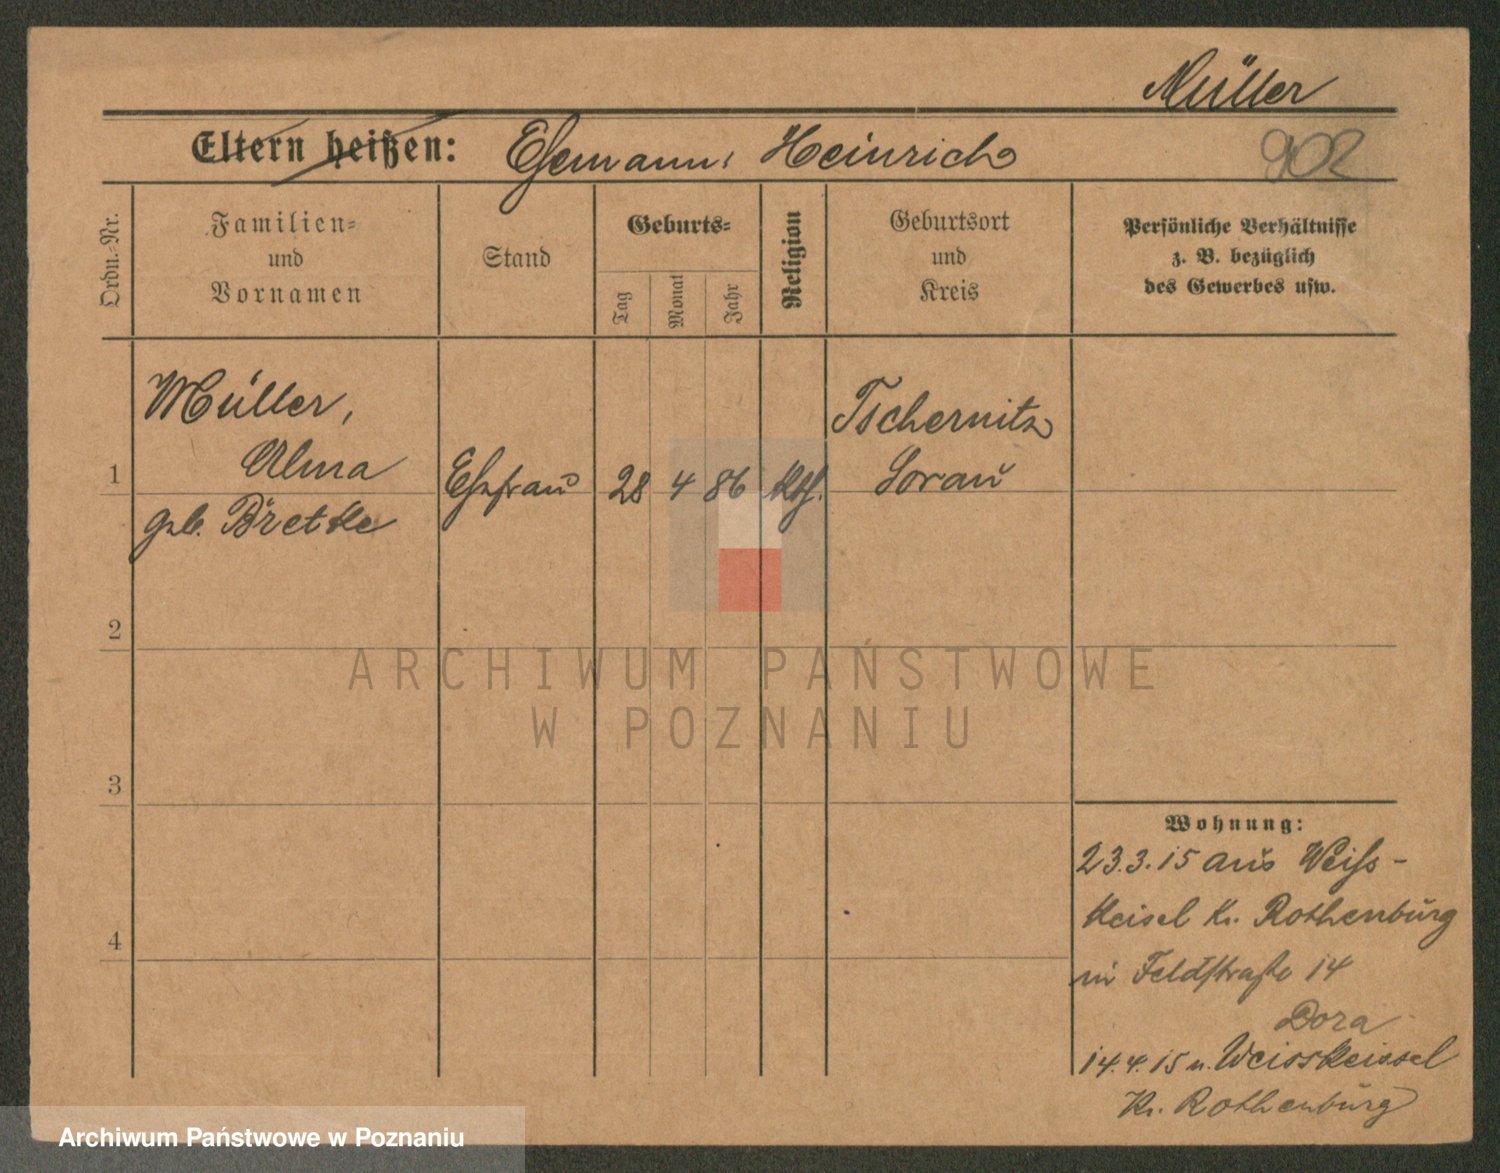 Müller
Eltern heißen: Ehemann: Heinrich
902
Ordn.-Nr.
Familien-
und
Vornamen
Stand
Geburts-
Tag
Monat
Jahr
Religion
Geburtsort
und
Kreis
Persönliche Verhältnisse
z. B. bezüglich
des Gewerbes usw.
Müller,
Alma
geb. Bretke
1
Ehefrau
28
4
86
Kth.
Tschernitz
Sorau
2
3
4
Wohnung:
23.3.15 aus Weiss-
keisel Kr. Rothenburg
in Feldstraße 14
Dora
14.4.15 n. Weisskeissel
Kr. Rothenburg
ARCHIWUM PAŃSTWOWE
W POZNANIU
Archiwum Państwowe w Poznaniu